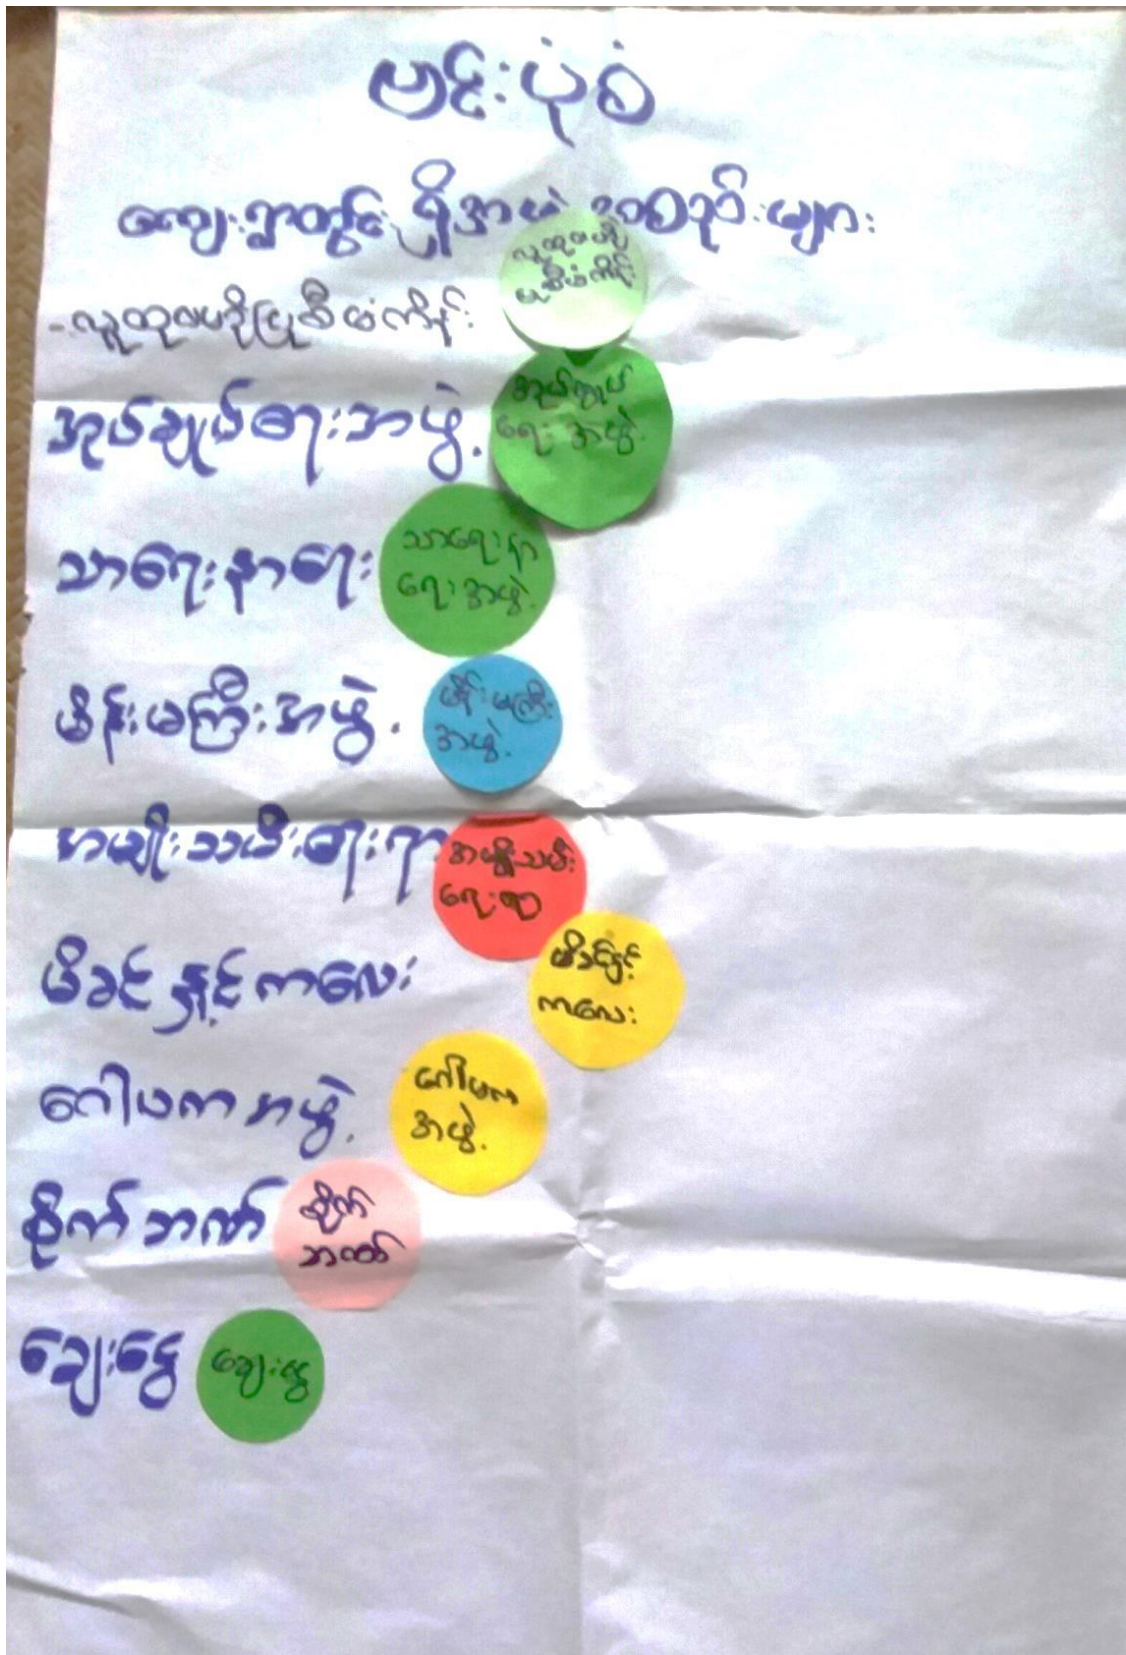 ဗင်းပုံစံ
ကျေးရွာတွင်းရှိအဖွဲ့အစည်းများ
-လူထုဗဟိုပြုစီမံကိန်း
လူထုဗဟို
ပြုစီမံကိန်း
အုပ်ချုပ်ရေးအဖွဲ့.
အုပ်ချုပ်
ရေးအဖွဲ့.
သာရေးနာရေး
သာရေးနာ
ရေးအဖွဲ့.
မိန်းမကြီးအဖွဲ့.
မိန်းမကြီး
အဖွဲ့.
အမျိုးသမီးရေးရာ
အမျိုးသမီး
ရေးရာ
မိခင်နှင့်ကလေး
မိခင်နှင့်
ကလေး
ဂေါပကအဖွဲ့.
ဂေါပက
အဖွဲ့.
စိုက်ဘဏ်
စိုက်
ဘဏ်
ချေးငွေ
ချေးငွေ